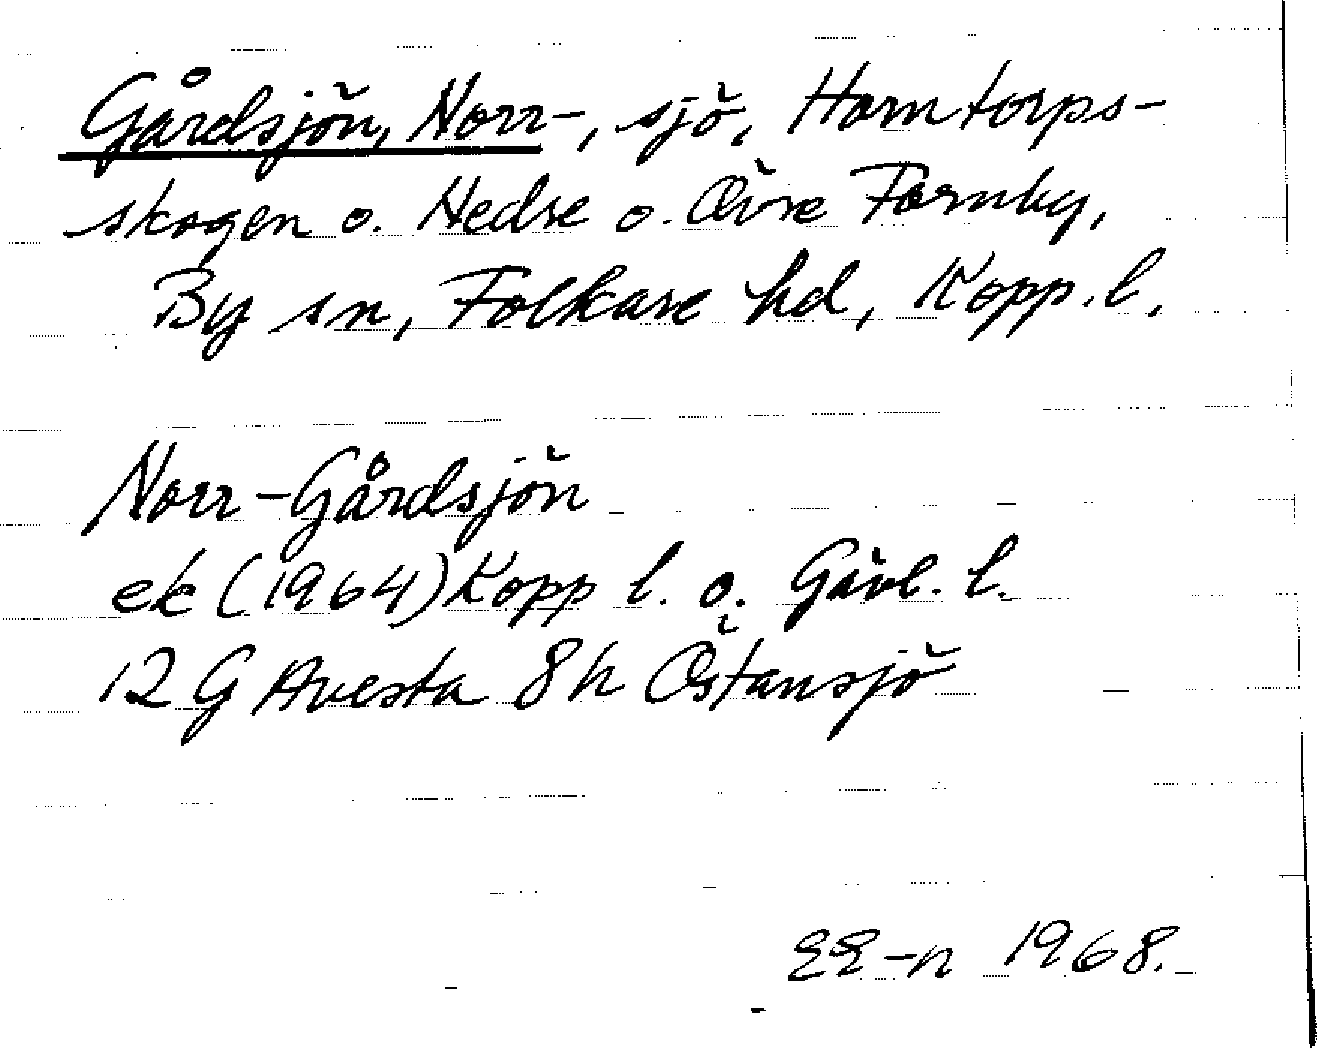 Gårdsjön, Norr-, sjö, Horntorps-
skogen o. Hedre o. Övre Fornby,
By sn, Folkare hd, Kopp. l.
Norr-Gårdsjön
ek (1964) Kopp l. o. Gävl. l.
12 G Avesta 8 h Östansjö
EE-n 1968.